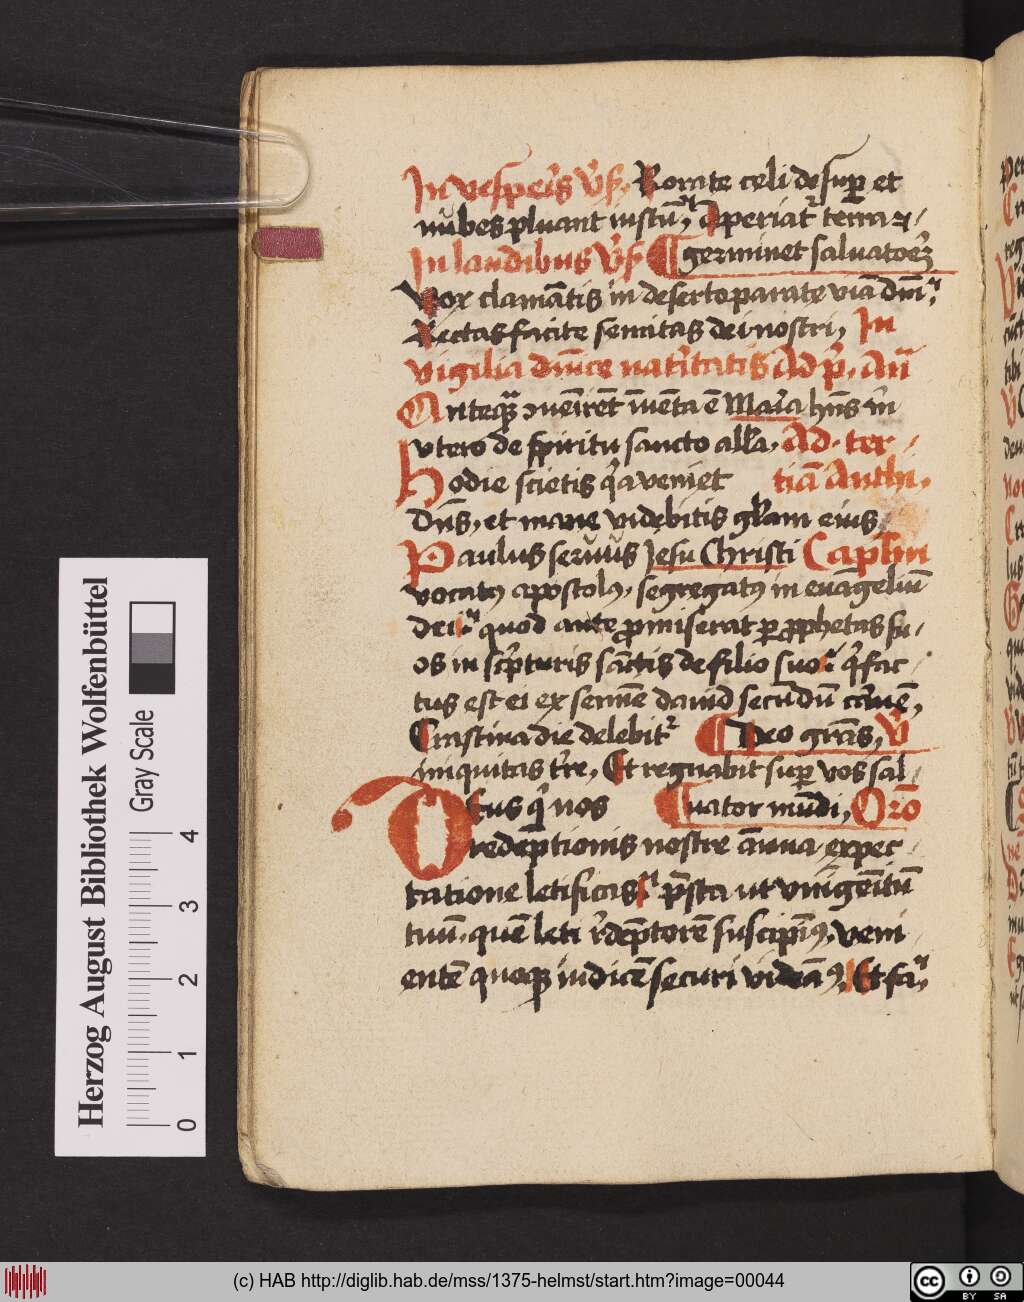 In vesperis v̄ß. Rorate celi desuꝑ et
nubes pluant iustū, Aperiat᷑ terra ⁊
In laudibus v̄ß germinet saluatorē
Vox clamātis in deserto parate viā dn̄i,
Rectas facite semitas dei nostri, In
vigilia dn̄ice natiuitatis Ad p̄. An̄
Anteq̄ꝫ ↄuenirēt inuenta ē Maria hn̄s in
vtero de spiritu sancto all̄a. Ad. ter
Hodie scietis q̄a veniet tiā Anthi.
Dn̄s, et mane videbitis gl̄am eius
Paulus seruus Jesu Christi Capl̄m
vocatꝰ apostolꝰ, segregatꝰ in euāgeliū
dei, quod ante ꝓmiserat ꝑ ꝓphetas su
os in sc̄pturis sāctis de filio suo, q̄ fac
tus est ei ex semīe dauid secūdū carnē,
Crastina die delebit᷑ Deo grās, v̄
iniquitas tr̄e, Et regnabit suꝑ vos sal
Deus q̄ nos uator mūdi, Orō
redēptionis nostre ānua expec
tatione letificas, p̄sta ut vnigenitū
tuū, quē leti redēptorē suscipimꝰ, veni
entē quoqꝫ iudicē securi videamꝰ, Et fa
Herzog August Bibliothek Wolfenbüttel
Gray Scale
0 1 2 3 4
(c) HAB http://diglib.hab.de/mss/1375-helmst/start.htm?image=00044
cc BY SA